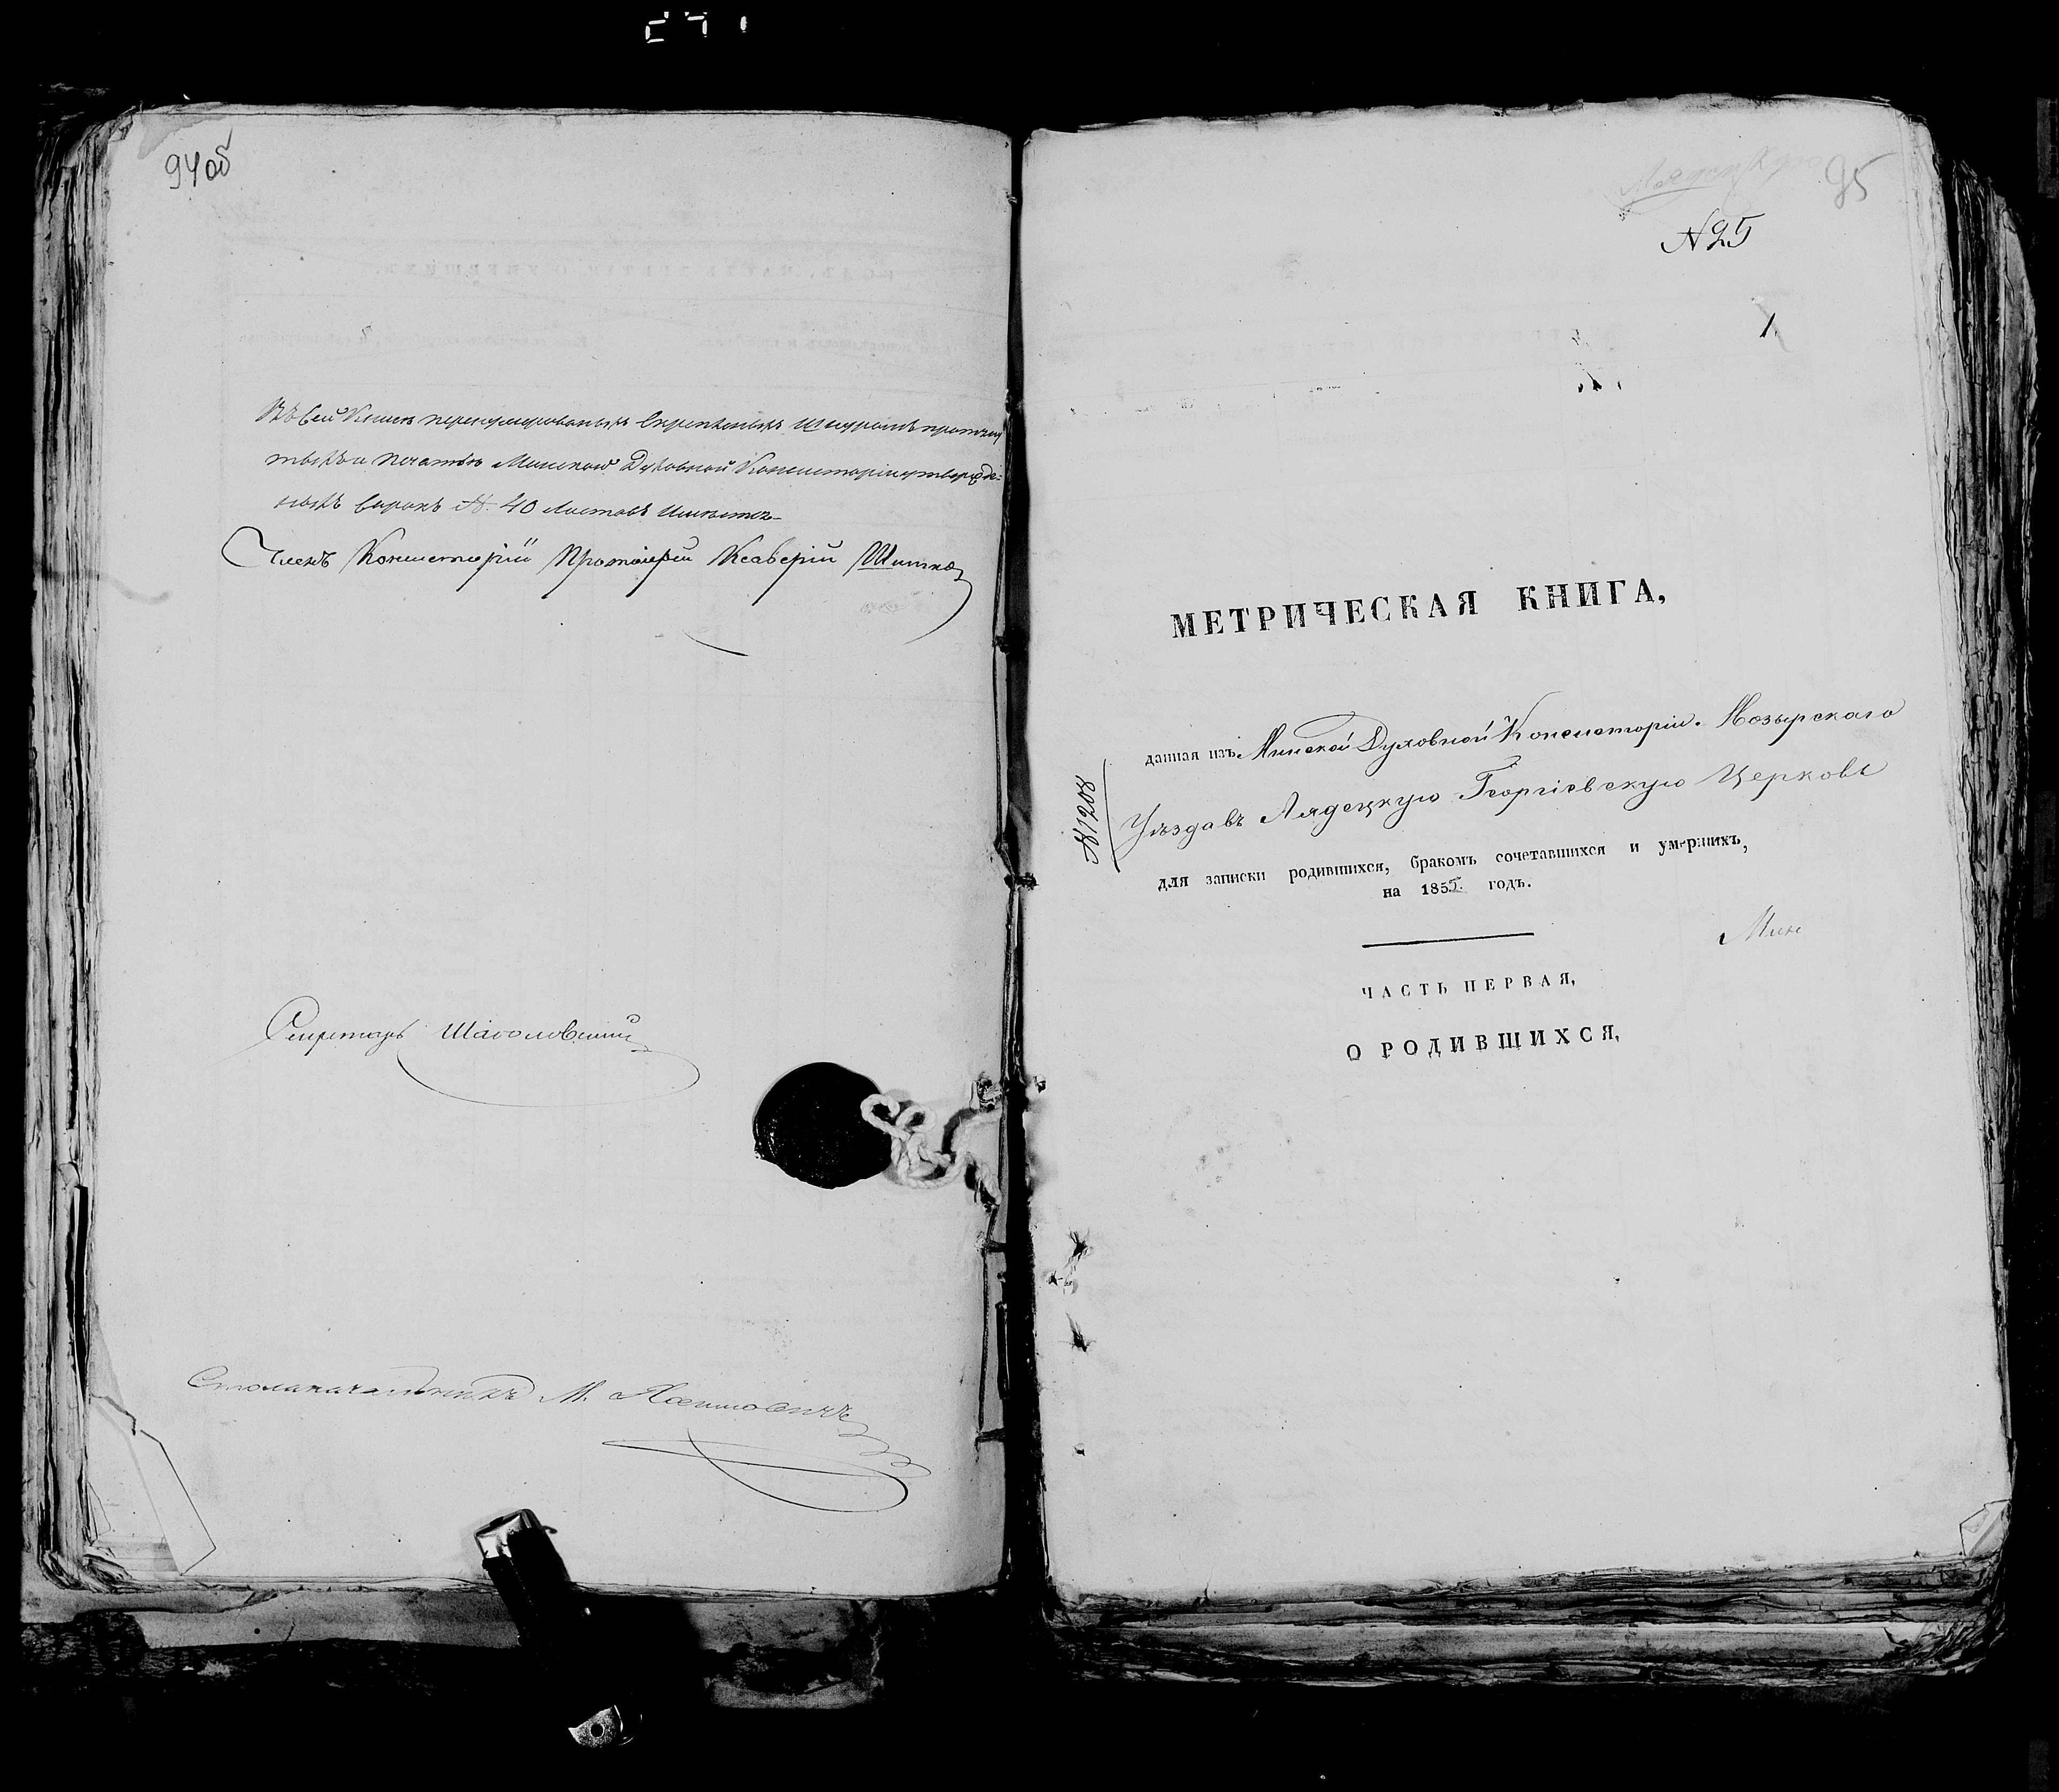 94 об
Въ сей Книгѣ перенумерованыхъ скрепленыхъ шнуромъ протяну
тыхъ и печатью Минской Духовной Консисторіи утвержде-
ныхъ сорокъ № 40 листовъ имѣется
Членъ Консисторіи Протоіерей Ксаверій
Секретарь
Столоначальникъ М.
95
N 25
1.
МЕТРИЧЕСКАЯ КНИГА,
данная изъ Минской Духовной Консисторіи. Мозырскаго
№ 1208
Уѣзда въ Лядецкую Георгіевскую Церковь
для записки родившихся, бракомъ сочетавшихся и умершихъ,
на 1855. годъ.
Мин
ЧАСТЬ ПЕРВАЯ,
О РОДИВШИХСЯ,